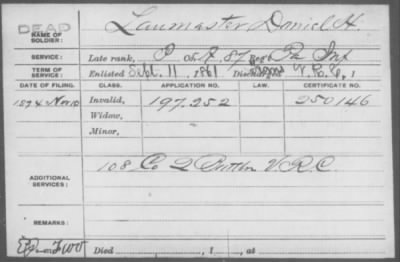 DEAD
NAME OF SOLDIER: Laumaster, Daniel H.
SERVICE: Late rank, P Co. K. 87 Reg't Pa Inf
TERM OF SERVICE: Enlisted Sept. 11, 1861 Discharged V.R.C., 1
DATE OF FILING. CLASS. APPLICATION NO. LAW. CERTIFICATE NO.
1874 Nov 10 Invalid, 197.252 250146
Widow,
Minor,
ADDITIONAL SERVICES: 108 Co 2 Battln V.R.C.
REMARKS:
Died , 1 , at